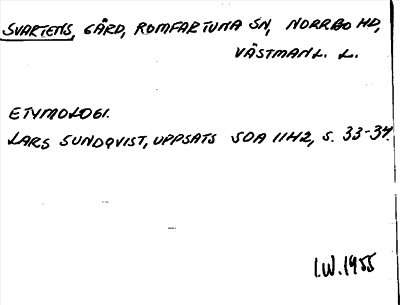 SVARTENS, GÅRD, ROMFARTUNA SN, NORRBO HD,
VÄSTMANL. L.
ETYMOLOGI.
LARS SUNDQVIST, UPPSATS SOA 11H2, S. 33-34.
I.W. 1955